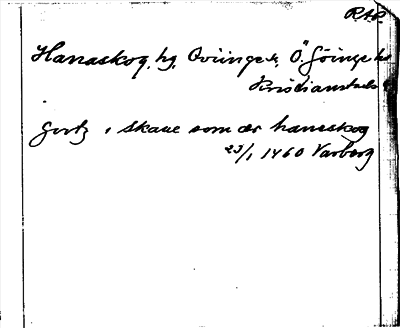 RAP.
Hanaskog, hg, Qvinge s, Ö. Göinge hd
Kristianstads
i Skane som är hanaskog
23/1 1460 Varberg